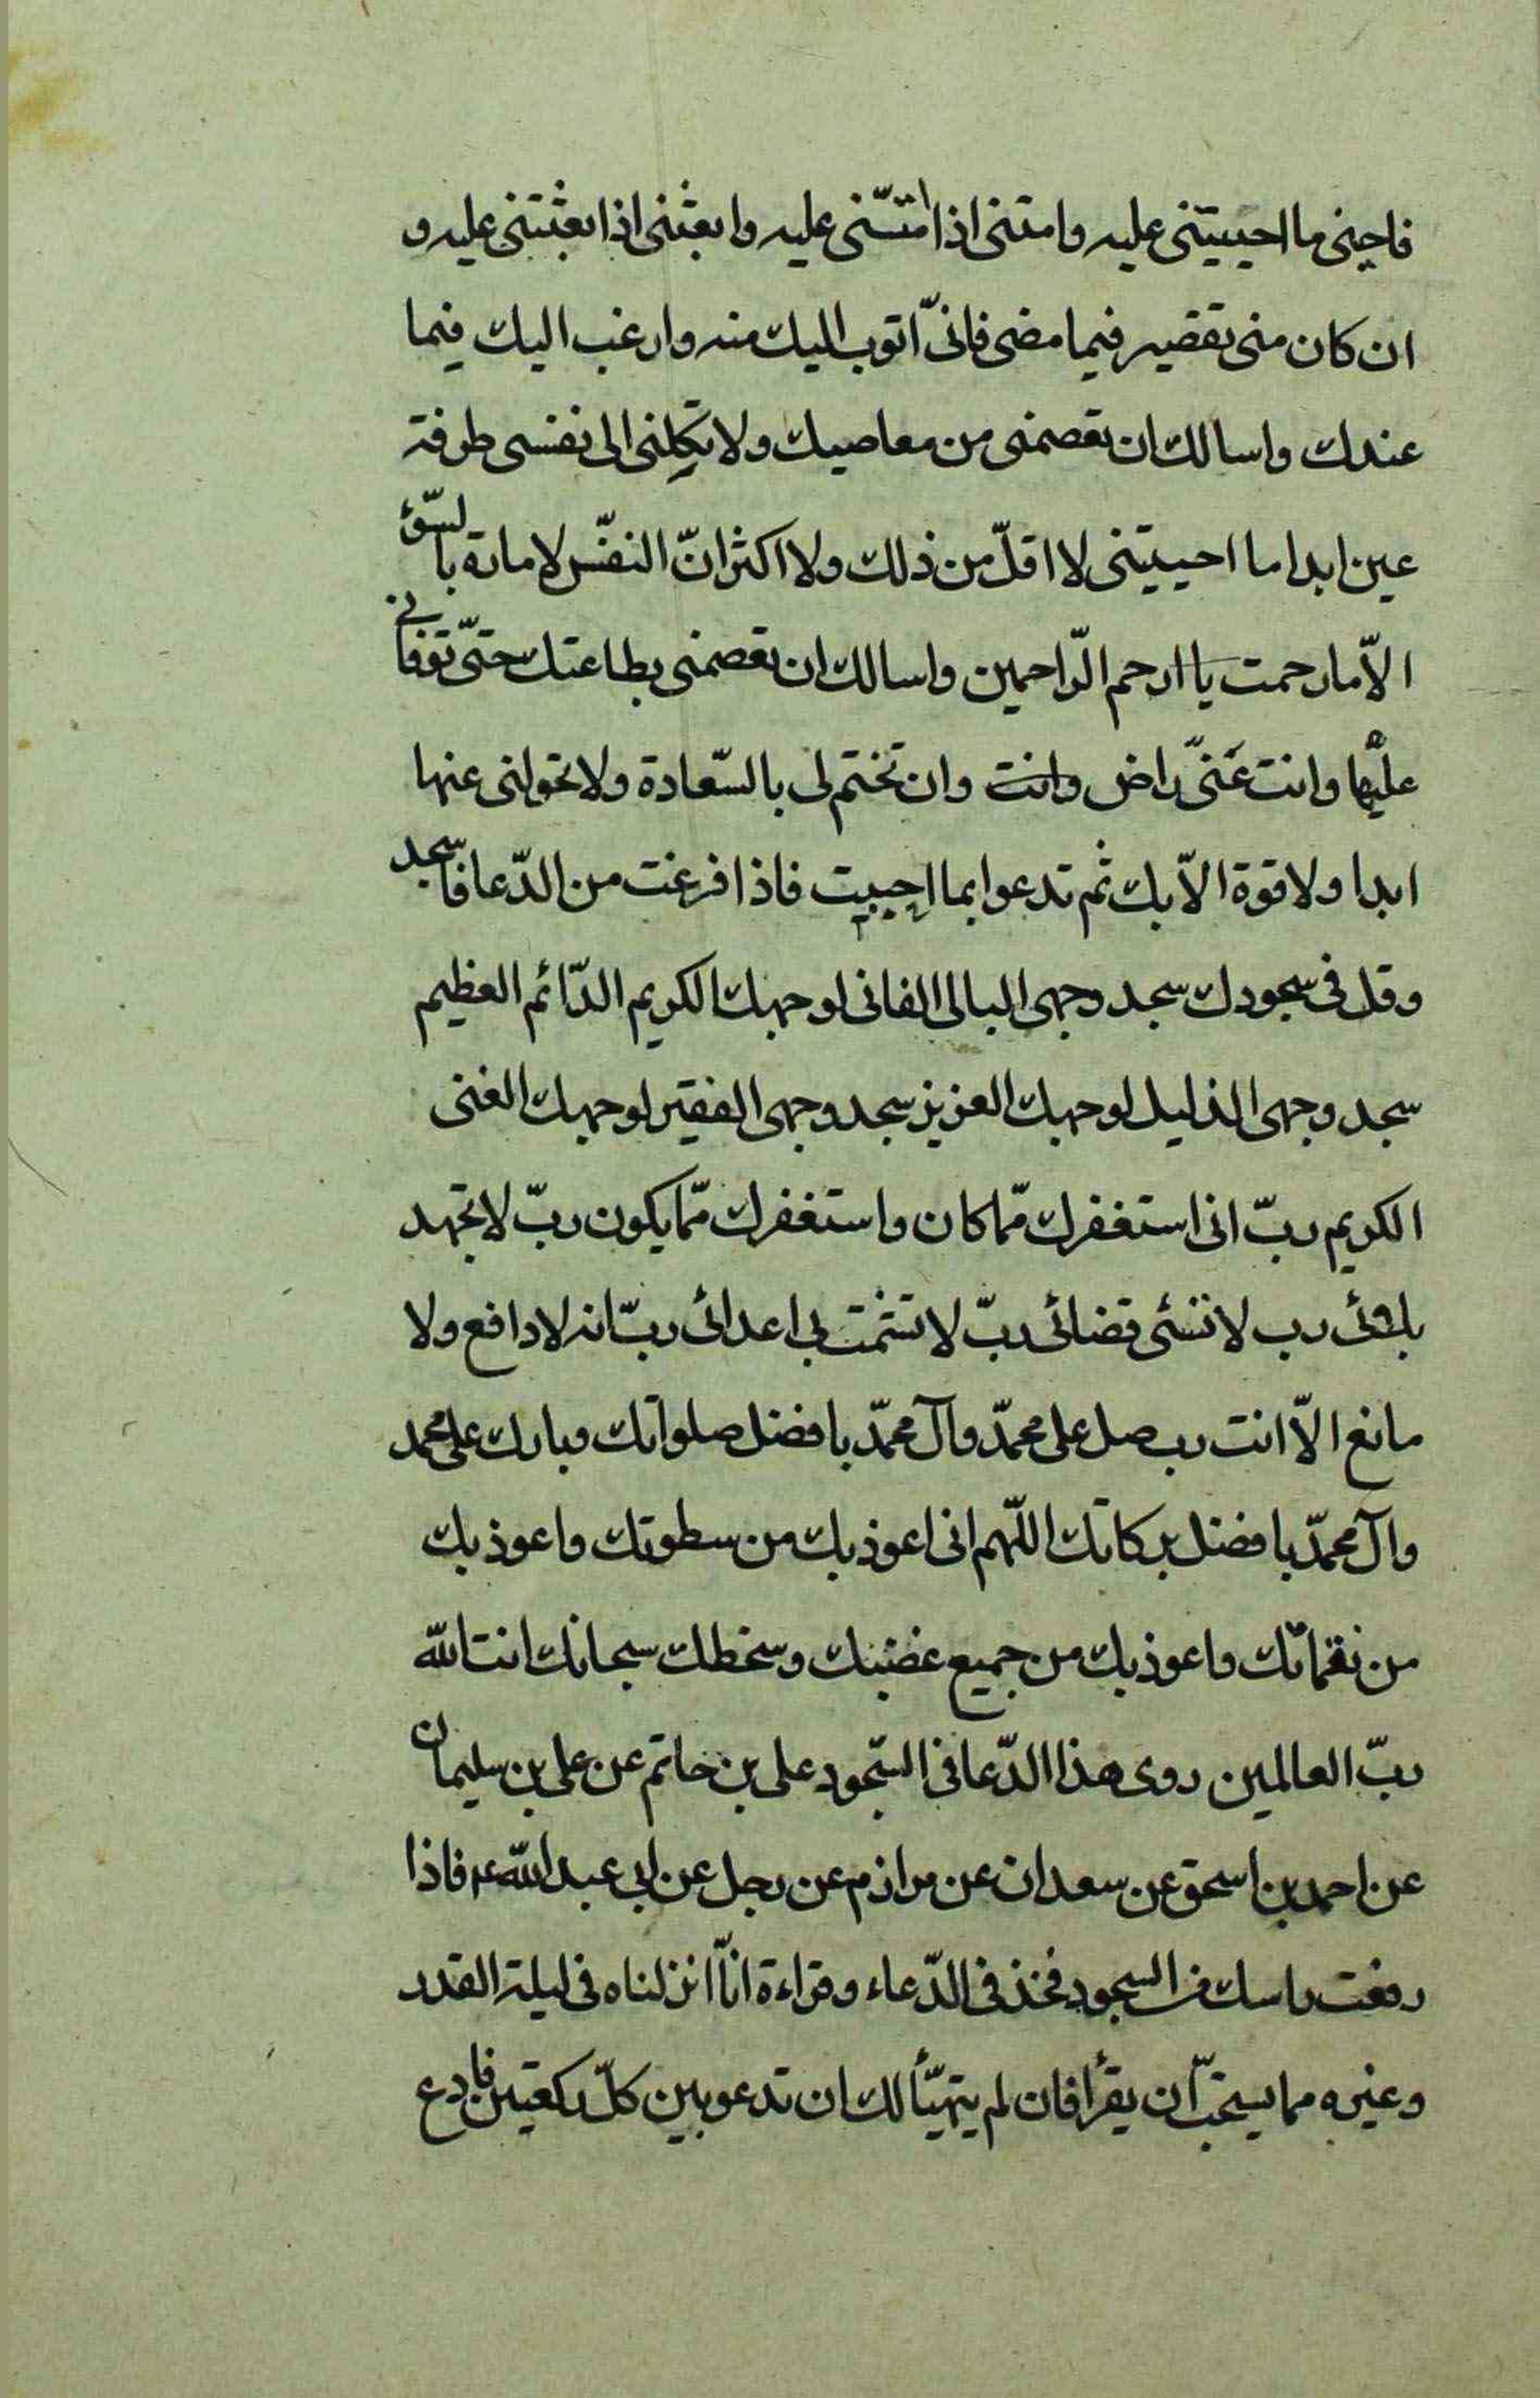 فاحينى ما احييتنى عليه وامتنى اذا امتّنى عليه وابعثنى اذا بعثتنى عليه و
ان كان منى تقصير فيما مضى فانّى اتوب اليك منه وارغب اليك فيما
عندك واسالك ان تعصمنى من معاصيك ولا تكلنى الى نفسى طرفة
عين ابدا ما احييتنى لا اقلّ من ذلك ولا اكثر انّ النفس لامارة بالسّوء
الّا ما رحمت يا ارحم الرّاحمين واسالك ان تعصمنى بطاعتك حتّى توفانى
عليها وانت عنّى راض وانت وان تختم لى بالسّعادة ولا تحولنى عنها
ابدا ولا قوة الّا بك ثم تدعوا بما احببت فاذا فرغت من الدّعا فاسجد
وقل فى سجودك سجد وجهى البالى الفانى لوجهك الكريم الدّائم العظيم
سجد وجهى الذليل لوجهك العزيز سجد وجهى الفقير لوجهك الغنى
الكريم ربّ انى استغفرك ممّا كان واستغفرك ممّا يكون ربّ لا تجهد
بلائى رب لا تسئى قضائى ربّ لا تشمت بى اعدائى ربّ انه لا دافع ولا
مانع الّا انت رب صل على محمّد وآل محمّد بافضل صلواتك وبارك على محمد
وآل محمّد بافضل بركاتك اللّهم انى اعوذ بك من سطوتك واعوذ بك
من نقماتك واعوذ بك من جميع غضبك وسخطك سبحانك انت الله
ربّ العالمين روى هذا الدّعا فى السّجود على بن حاتم عن على بن سليمان
عن احمد بن اسحق عن سعدان عن مرازم عن رجل عن ابى عبد الله ع فاذا
رفعت راسك من السجود فخذ فى الدّعاء وقراءة انّا انزلناه فى ليلة القدر
وغيره مما يستحبّ ان يقرأ فان لم يتهيّأ لك ان تدعو بين كلّ ركعتين فادع